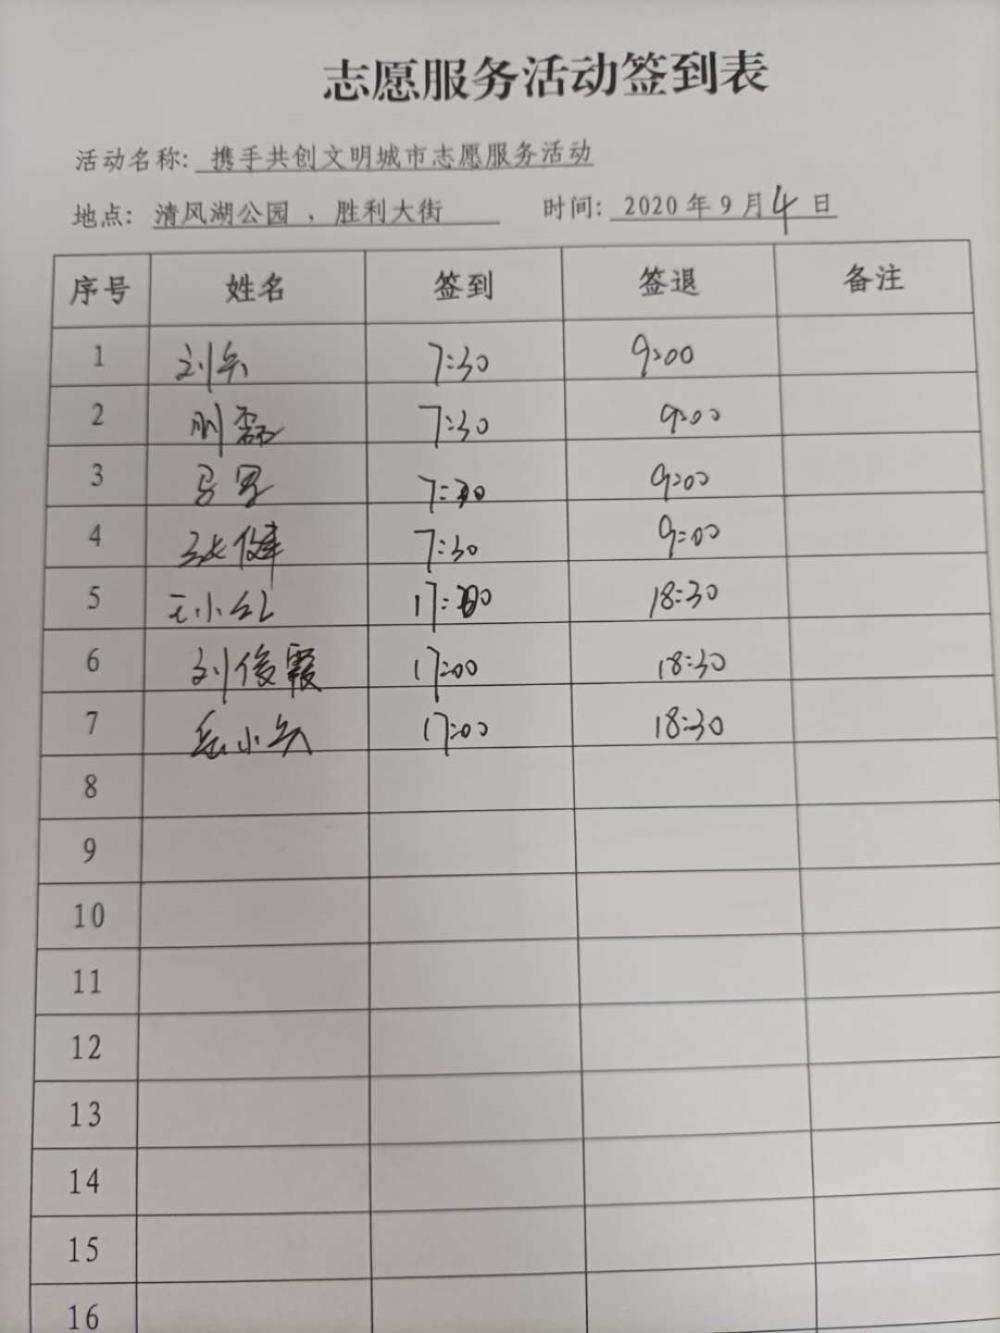 志愿服务活动签到表
活动名称: 携手共创文明城市志愿服务活动
地点: 清风湖公园 ，胜利大街 时间: 2020 年 9 月 4 日
序号 姓名 签到 签退 备注
1 刘兵 7:30 9:00
2 刘磊 7:30 9:00
3 7:30 9:00
4 张健 7:30 9:00
5 王小红 17:00 18:30
6 刘俊霞 17:00 18:30
7 岳小兵 17:00 18:30
8
9
10
11
12
13
14
15
16